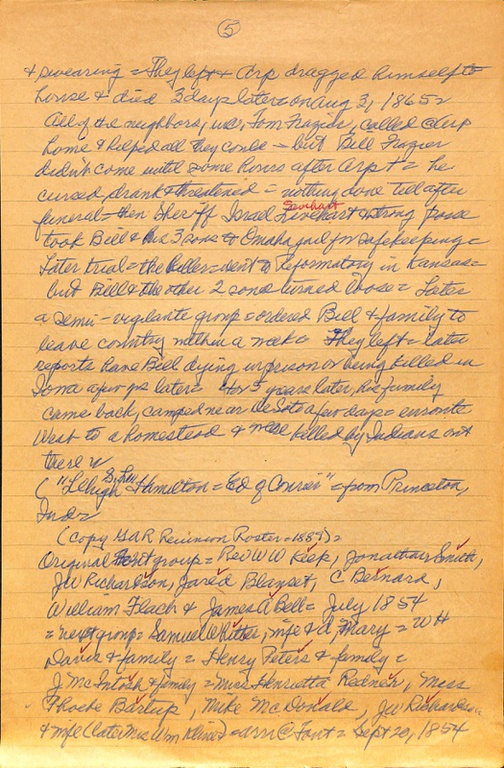 5
& swearing = They left & Arp dragged himself to
house & died 3 days later = on Aug 3, 1865 =
All of the neighbors, inc, Tom Frazier, called @ Arp
home & helped all they could = but Bill Frazier
didn't come until some hours after Arp + = he
cursed drank & threatened = nothing done till after
funeral = then Sheriff Israel Swihart & strong posse
took Bill & his 3 sons to Omaha jail for safekeeping =
Later trial = the killer = sent to Reformatory in Kansas =
but Bill & the other 2 sons turned loose = Later
a semi-vigilante group = ordered Bill & family to
leave country within a week = They left = later
reports have Bill dying in prison or being killed in
Iowa a few yrs later = years later, his family
came back, camped near DeSoto a few days = enroute
West to a homestead & were killed by Indians out
there
("Lehigh Hamilton = Ed of Courier" = from Princeton,
Ind =
(Copy GAR Reunion Roster = 188 ) =
Original Font group = Rev W W Keep, Jonathan Smith,
JW Richardson, Jared Blanset, C Bernard,
William Flach & James A Bell = July 1854
= next group = Samuel Whittier, wife & d, Mary = WH
Davis & family = Henry Peters & family =
J McIntosh & family = Miss Henrietta Redner, Miss
Phoebe Barlup, Mike McDonald, JW Richardson
& wife (later Mrs Wm Kline) = arr @ Font = Sept 20, 1854